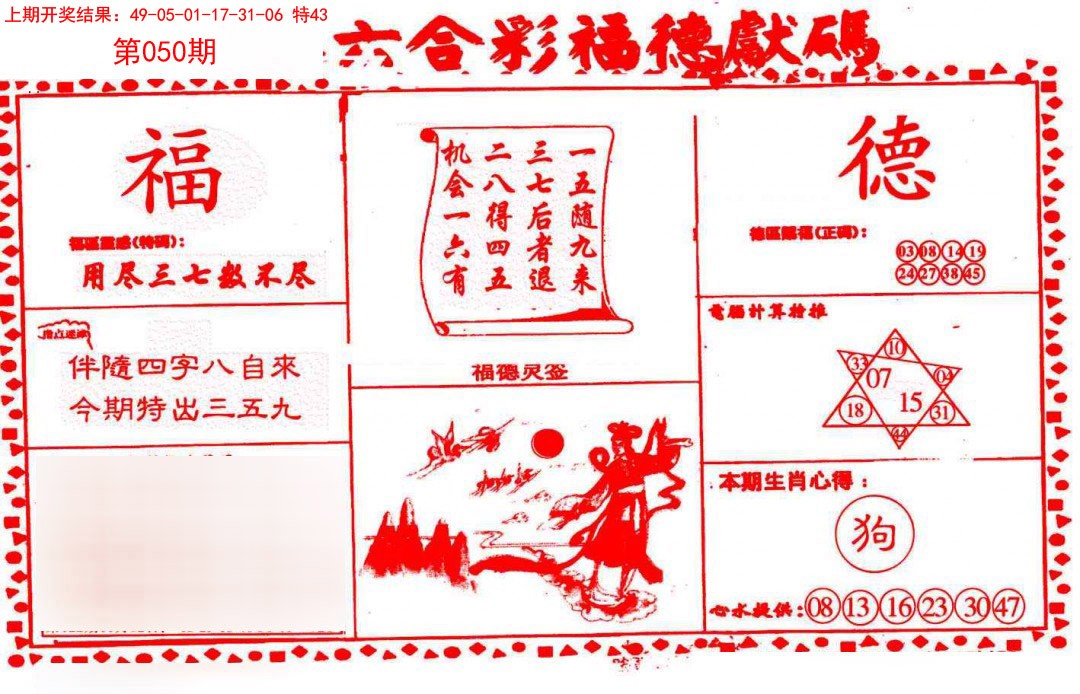 上期开奖结果：49-05-01-17-31-06 特43
第050期
六合彩福德獻碼
福
福區靈感(特碼)：
用尽三七数不尽
指点迷津
伴隨四字八自來
今期特出三五九
一五随九来
三七后者退
二八得四五
机会一六有
福德灵签
德
(正碼)：
03 08 14 19
24 27 38 45
電腦計算
10
33 07 04
18 15 31
44
本期生肖心得：
狗
心水提供：08 13 16 23 30 47